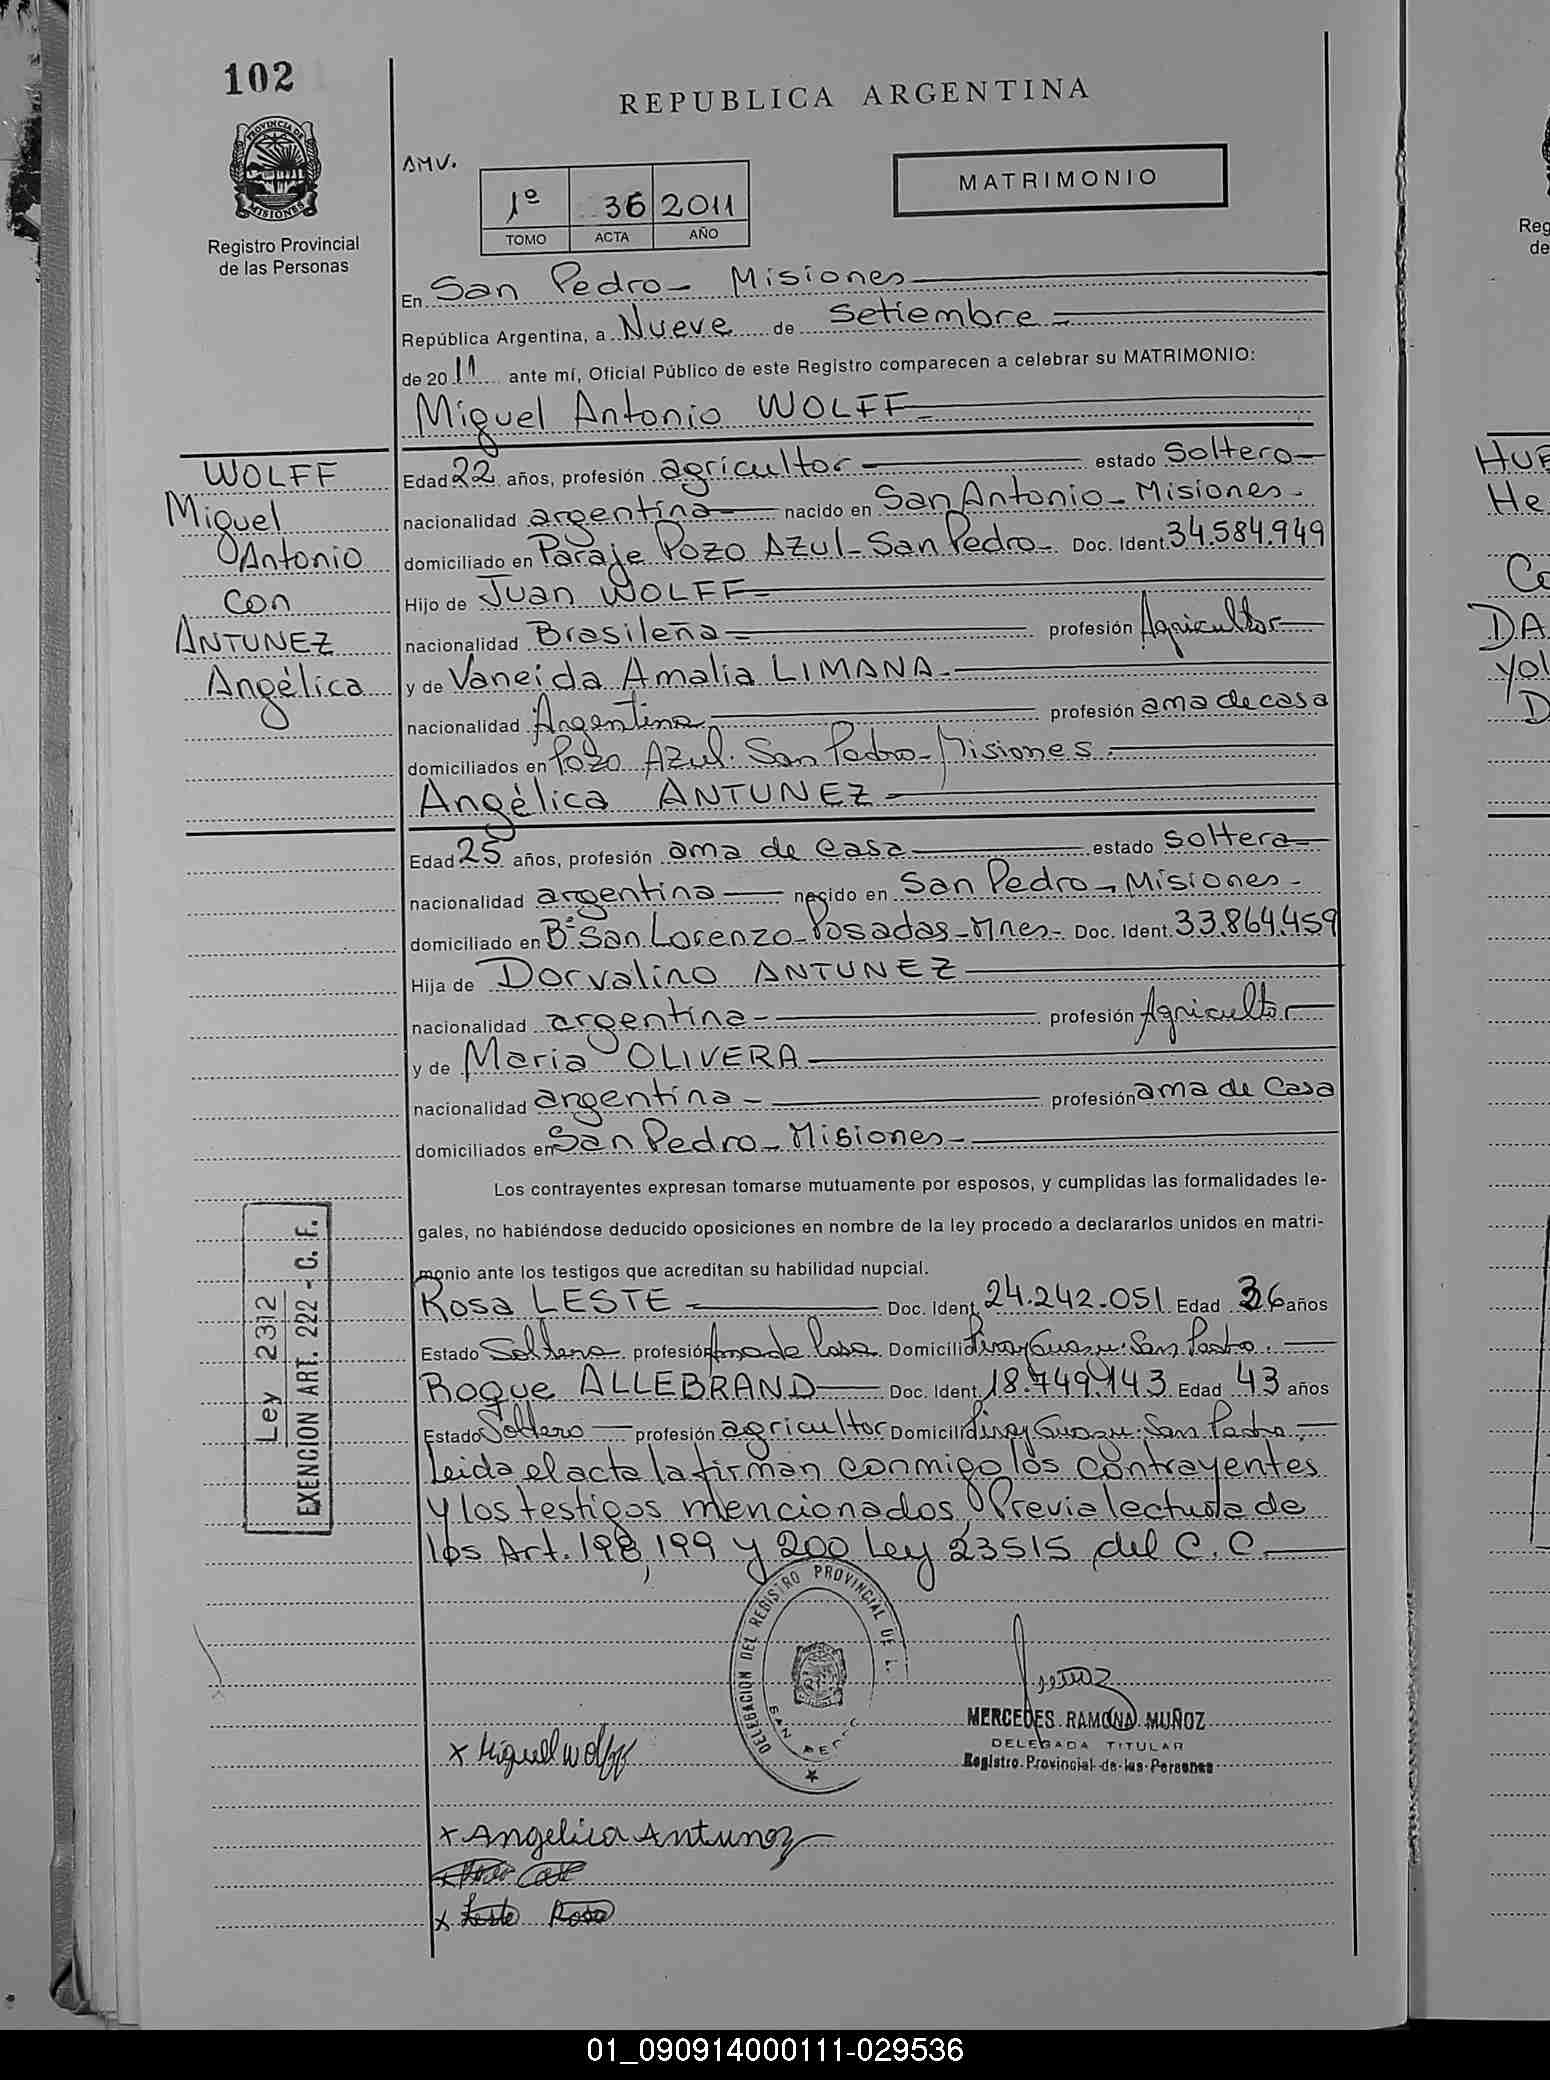 102
REPUBLICA ARGENTINA
PROVINCIA DE
MISIONES
Registro Provincial
de las Personas
AMV.
1º 36 2011
TOMO ACTA AÑO
MATRIMONIO
En San Pedro - Misiones
República Argentina, a Nueve de Setiembre
de 2011 ante mí, Oficial Público de este Registro comparecen a celebrar su MATRIMONIO:
Miguel Antonio WOLFF
WOLFF
Miguel
Antonio
con
ANTUNEZ
Angélica
Edad 22 años, profesión agricultor estado Soltero
nacionalidad argentina nacido en San Antonio - Misiones -
domiciliado en Paraje Pozo Azul - San Pedro - Doc. Ident. 34.584.949
Hijo de Juan WOLFF
nacionalidad Brasileña profesión Agricultor
y de Vaneida Amalia LIMANA
nacionalidad Argentina profesión ama de casa
domiciliados en Pozo Azul. San Pedro - Misiones.
Angélica ANTUNEZ
Edad 25 años, profesión ama de casa estado soltera
nacionalidad argentina nacido en San Pedro - Misiones -
domiciliado en Bº San Lorenzo - Posadas - Mnes - Doc. Ident. 33.864.459
Hija de Dorvalino ANTUNEZ
nacionalidad argentina - profesión Agricultor
y de Maria OLIVERA
nacionalidad argentina - profesión ama de Casa
domiciliados en San Pedro - Misiones -
Los contrayentes expresan tomarse mutuamente por esposos, y cumplidas las formalidades le-
gales, no habiéndose deducido oposiciones en nombre de la ley procedo a declararlos unidos en matri-
monio ante los testigos que acreditan su habilidad nupcial.
Rosa LESTE Doc. Ident. 24.242.051 Edad 36 años
Estado Soltera profesión Ama de Casa Domicilio Piray Guazu. San Pedro.
Roque ALLEBRAND Doc. Ident. 18.749.143 Edad 43 años
Estado Soltero profesión agricultor Domicilio Piray Guazu. San Pedro.
Leida el acta la firman conmigo los contrayentes
y los testigos mencionados, Previa lectura de
los Art. 198, 199 y 200 Ley 23515 del C.C.
Ley 2312
EXENCION ART. 222 - C. F.
DELEGACION DEL REGISTRO PROVINCIAL DE L
SAN PEDRO
MERCEDES RAMONA MUÑOZ
DELEGADA TITULAR
Registro Provincial de las Personas
x Miguel Wolff
x Angelica Antunez
x Leste Rosa
Reg
de
HUE
He
Co
DA
Yol
D
01_090914000111-029536